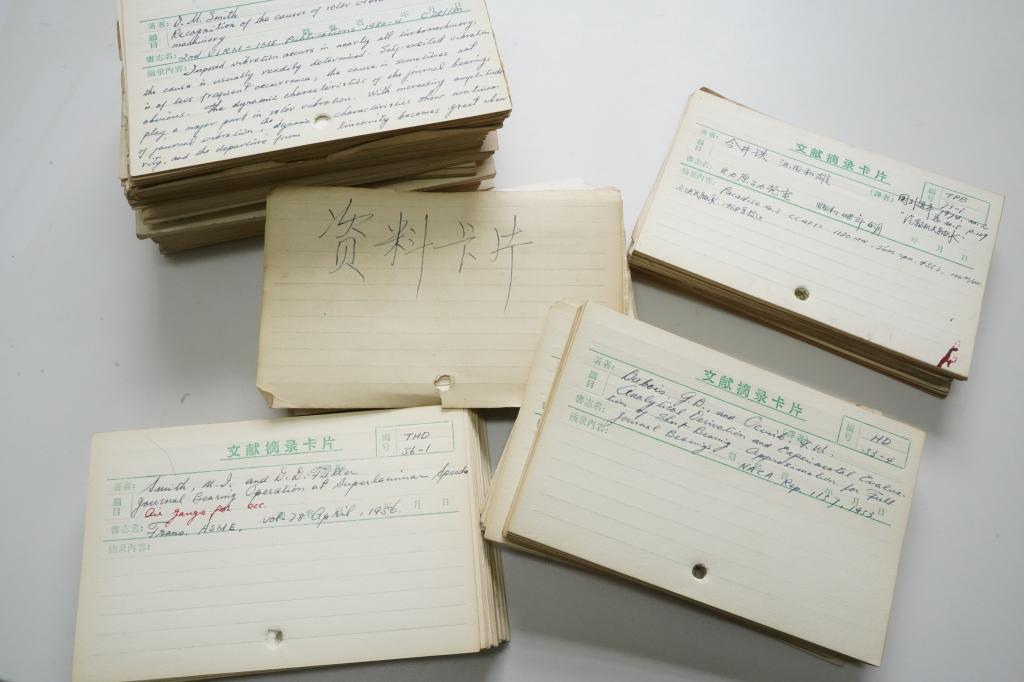 著者: D. M. Smith
題目 Recognition of the causes of rotor
machinery
年 月
書志名: 2nd VIRM-IME Publications 1980-4
摘录内容: Imposed vibration occurs in nearly all turbomachinery,
the cause is usually readily determined. Self-excited vibration
is of less frequent occurrence, the cause is sometimes not
obvious. The dynamic characteristics of the journal bearings
play a major part in rotor vibration. With increasing amplitude
of journal vibration, the dynamic characteristics show non-linea-
rity, and the departure from linearity becomes great when
资料卡片
文献摘录卡片
編号 TPB
13-1
著者: 今井鉄 池田和雄
(譯者)
題目
書志名: 火力原子力発電 昭和48年6月
年 月 日
摘录内容: Paradise no.3
文献摘录卡片
編号 THD
56-1
著者: Smith, M.I. and D.D. Fuller
題目 Journal Bearing Operation at Superlaminar Speeds
Air gauge for ecc.
書志名: Trans. ASME. vol. 78 April, 1956. 月 日
摘录内容:
文献摘录卡片
編号 HD
53-4
著者: Dubois, G.B., and Ocvirk, F.W.
(譯者)
題目 Analytical Derivation and Experimental Evalua-
tion of Short Bearing Approximation for Full
Journal Bearings
書志名: 期 年 月 日
NACA Rep. 1157, 1953
摘录内容: